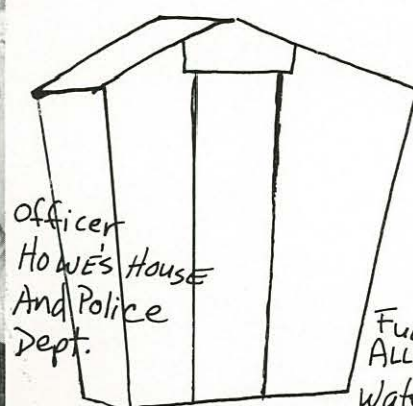 Officer
HOWE'S HOUSE
And Police
Dept.
ALL
Wat